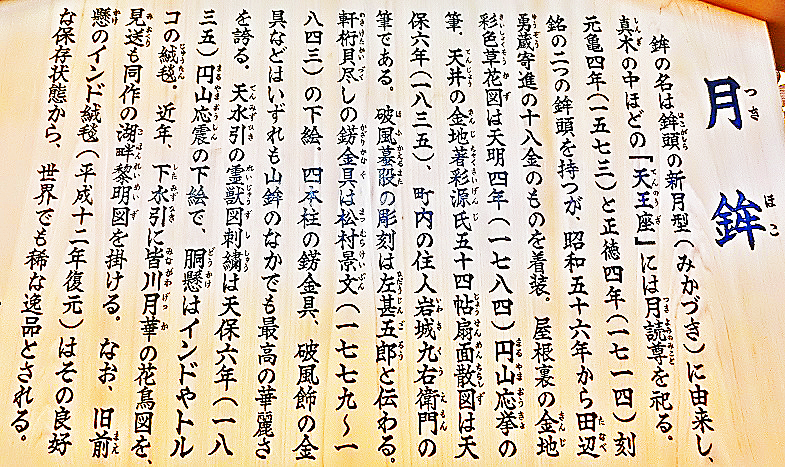 月鉾
鉾の名は鉾頭の新月型(みかづき)に由来し、
真木の中ほどの「天王座」には月読尊を祀る。
元亀四年(一五七三)と正徳四年(一七一四)刻
銘の二つの鉾頭を持つが、昭和五十六年から田辺
勇蔵寄進の十八金のものを着装。屋根裏の金地
彩色草花図は天明四年(一七八四)円山応挙の
筆、天井の金地著彩源氏五十四帖扇面散図は天
保六年(一八三五)、町内の住人岩城九右衛門の
筆である。破風蟇股の彫刻は左甚五郎と伝わる。
軒桁貝尽しの錺金具は松村景文(一七七九〜一
八四三)の下絵、四本柱の錺金具、破風飾の金
具などはいずれも山鉾のなかでも最高の華麗さ
を誇る。天水引の霊獣図刺繍は天保六年(一八
三五)円山応震の下絵で、胴懸はインドやトル
コの絨毯。近年、下水引に皆川月華の花鳥図を、
見送も同作の湖畔黎明図を掛ける。なお、旧前
懸のインド絨毯(平成十二年復元)はその良好
な保存状態から、世界でも稀な逸品とされる。